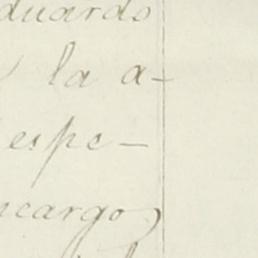 duardo
la a-
espe-
ncargo,